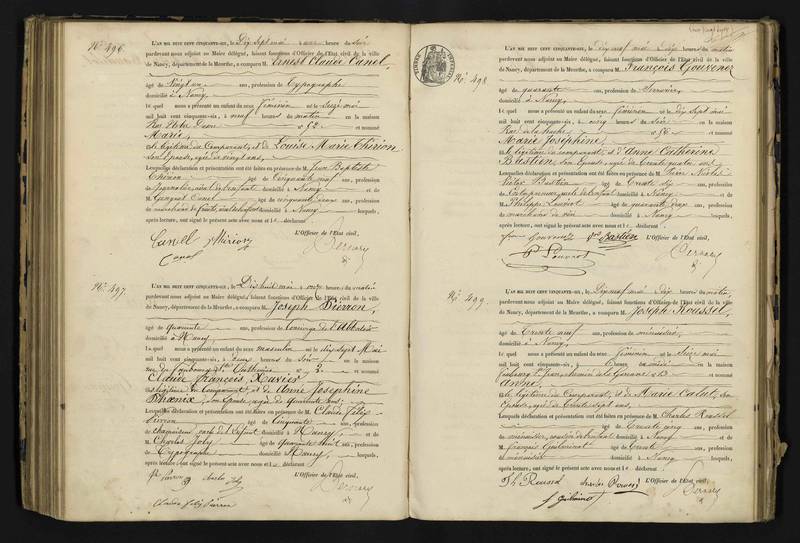 N.º 496.
L'AN MIL HUIT CENT CINQUANTE-SIX, le Dix sept mai heure du soir
pardevant nous adjoint au Maire délégué, faisant fonctions d'Officier de l'État civil de la ville
de Nancy, département de la Meurthe, a comparu M. Ernest Claude Canel,
âgé de Vingt un ans, profession de Typographe
domicilié à Nancy,
Lequel nous a présenté un enfant du sexe féminin né le seize mai
mil huit cent cinquante-six, à neuf heures du matin en la maison
Rue Notre Dame n.º 52 et nommé
Marie,
et légitime du Comparant, et de Louise Marie Thirion
son épouse, âgée de vingt ans,
Lesquelles déclaration et présentation ont été faites en présence de M. Jean Baptiste
Thirion âgé de Cinquante neuf ans, profession
de Journalier, aïeul de l'enfant domicilié à Nancy et de
M. Canel âgé de cinquante deux ans, profession
de marchand de fruits, aïeul de l'enfant domicilié à Nancy lesquels,
après lecture, ont signé le présent acte avec nous et le déclarant
L'Officier de l'État civil,
Canel Thirion
Canel
N.º 497.
L'AN MIL HUIT CENT CINQUANTE-SIX, le Dix huit mai à onze heures du matin
pardevant nous adjoint au Maire délégué, faisant fonctions d'Officier de l'État civil de la ville
de Nancy, département de la Meurthe, a comparu M. Joseph Pierron,
âgé de Quarante ans, profession de Concierge de l'abbatoir
domicilié à Nancy
Lequel nous a présenté un enfant du sexe masculin né le dix sept Mai
mil huit cent cinquante-six, à deux heures du soir en la maison
rue du faubourg Ste Catherine n.º 2 et nommé
Claude François Xavier
et légitime du Comparant, et de Anne Joséphine
Phoenix, son épouse, âgée de Quarante ans;
Lesquelles déclaration et présentation ont été faites en présence de M. Claude Félix
Pierron âgé de Cinquante ans, profession
de oncle de l'enfant domicilié à Nancy, et de
M. Charles Joly âgé de Quarante huit ans, profession
de Typographe domicilié à Nancy, lesquels,
après lecture, ont signé le présent acte avec nous et le déclarant
L'Officier de l'État civil,
Pierron Charles Joly
Claude Félix Pierron
N.º 498.
L'AN MIL HUIT CENT CINQUANTE-SIX, le Dix neuf mai Dix heures du matin
pardevant nous adjoint au Maire délégué, faisant fonctions d'Officier de l'État civil de la ville
de Nancy, département de la Meurthe, a comparu M. François Gouvenez
âgé de quarante ans, profession de Serrurier,
domicilié à Nancy,
Lequel nous a présenté un enfant du sexe féminin né le dix sept mai
mil huit cent cinquante-six, à cinq heures du soir en la maison
n.º 56 et nommé
Marie Joséphine,
et légitime du comparant et d'Anne Catherine
Bastien son épouse, âgée de trente quatre ans,
Lesquelles déclaration et présentation ont été faites en présence de M. Pierre Nicolas
Victor Bastien âgé de Trente six ans, profession
de oncle de l'enfant domicilié à Nancy et de
M. Philippe Louviot âgé de quarante deux ans, profession
de marchand de vin domicilié à Nancy lesquels,
après lecture, ont signé le présent acte avec nous et le déclarant
L'Officier de l'État civil,
Gouvenez Bastien
P. Louviot
N.º 499.
L'AN MIL HUIT CENT CINQUANTE-SIX, le Dix neuf mai dix heures du matin,
pardevant nous adjoint au Maire délégué, faisant fonctions d'Officier de l'État civil de la ville
de Nancy, département de la Meurthe, a comparu M. Joseph Roussel,
âgé de Trente neuf ans, profession de menuisier,
domicilié à Nancy,
Lequel nous a présenté un enfant du sexe féminin né le seize mai
mil huit cent cinquante-six, à heures en la maison
faubourg n.º 53 et nommé
Anne,
et légitime du Comparant, et de Marie Calut, son
épouse, âgée de Trente sept ans,
Lesquelles déclaration et présentation ont été faites en présence de M. Charles Roussel
âgé de Trente cinq ans, profession
de menuisier, cousin de l'enfant domicilié à Nancy et de
M. François âgé de Trente ans, profession
de menuisier domicilié à Nancy lesquels,
après lecture, ont signé le présent acte avec nous et le déclarant
L'Officier de l'État civil,
Roussel